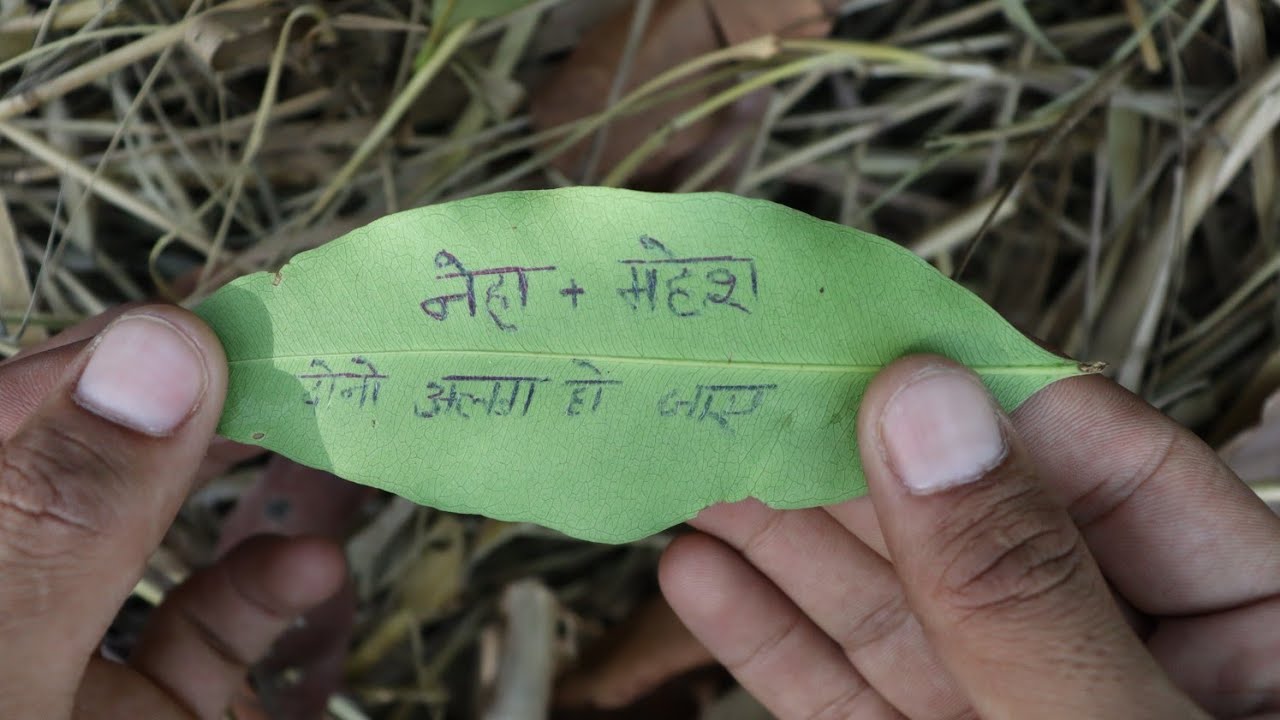 नेहा + महेश
दोनो अलग हो जाए